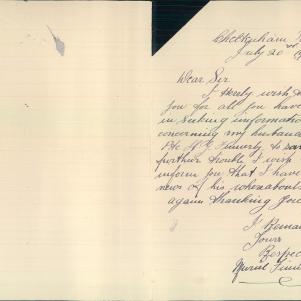 Cheltenham
July 20
Dear Sir
I hereby wish
you for all you have
in seeking information
concerning my husband
Pte
further trouble I wish
inform you that I have
news of his whereabouts
again thanking you
I Remain
Yours
Respec
Muriel